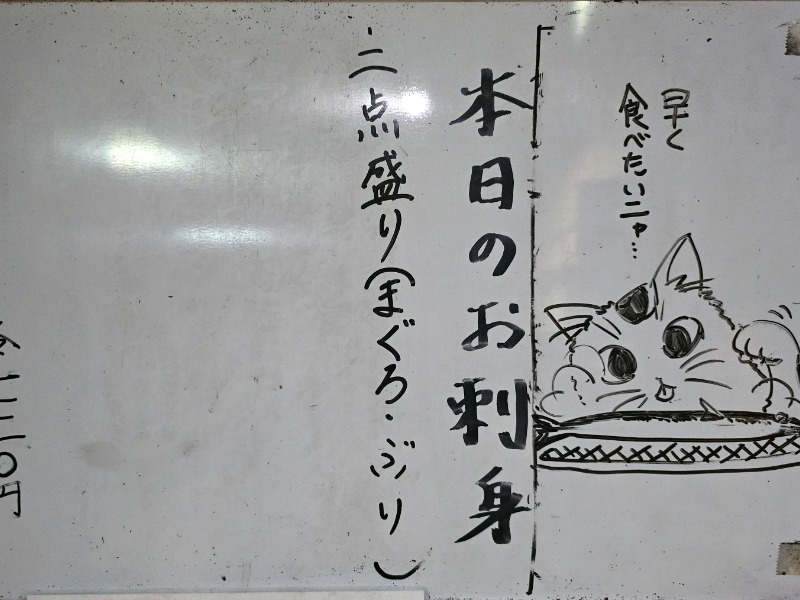 早く
食べたいニャ…
本日のお刺身
・二点盛り(まぐろ・ぶり)
〇円